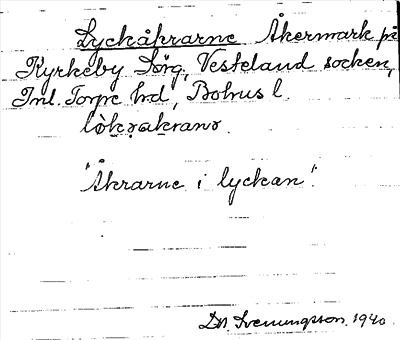 Lyckåkrarne Åkermark på
Kyrkeby Sörg, Vesteland socken,
Inl. Torpe hd, Bohus l.
"Åkrarne i lyckan".
Dn. Svenungsson. 1940.